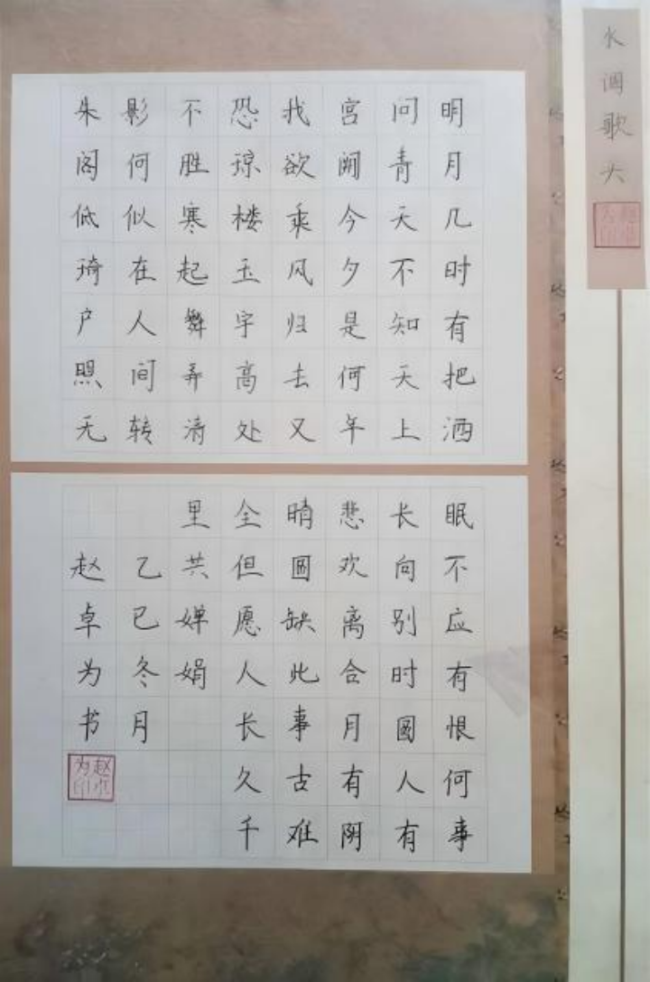 水调歌头
赵卓为印
明月几时有把酒
问青天不知天上
宫阙今夕是何年
我欲乘风归去又
恐琼楼玉宇高处
不胜寒起舞弄清
影何似在人间转
朱阁低绮户照无
眠不应有恨何事
长向别时圆人有
悲欢离合月有阴
晴圆缺此事古难
全但愿人长久千
里共婵娟
乙巳冬月
赵卓为书
赵卓为印